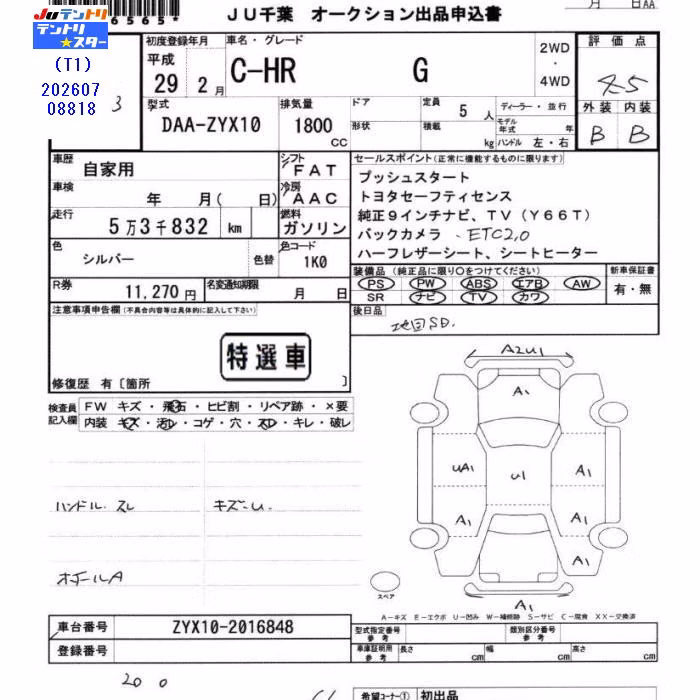 6565
JU千葉 オークション出品申込書
月 日AA
JUテントリ
テントリ★スター
(T1)
202607
08818
3
初度登録年月
平成
29 2月
車名・グレード
C-HR G
2WD
・
4WD
評価点
4.5
外装 内装
B B
型式
DAA-ZYX10
排気量
1800
CC
ドア
形状
定員 5 人
積載 kg
ディーラー・並行
モデル年式 年
ハンドル 左・右
車歴
自家用
車検
年 月( 日)
走行
5万3千832 km
色
シルバー
色替
色コード
1K0
シフト
FAT
冷房
AAC
燃料
ガソリン
セールスポイント(正常に機能するものに限ります)
プッシュスタート
トヨタセーフティセンス
純正9インチナビ、TV(Y66T)
バックカメラ ・ETC2.0
ハーフレザーシート、シートヒーター
装備品(純正品に限り○をつけてください)
PS PW ABS エアB AW
SR ナビ TV カワ
新車保証書
有・無
R券
11,270円
名変通知期限
月 日
後日品
地図SD.
注意事項申告欄(不具合内容等は具体的に記入して下さい)
特選車
修復歴 有〔箇所 〕
検査員
記入欄
FW キズ・飛石・ヒビ割・リペア跡・×要
内装 キズ・汚レ・コゲ・穴・スレ・キレ・破レ
ハンドル.スレ
キズ-U.
オイールA
A2U1
A1
UA1
U1
A1
A1
A1
A1
A1
スペア
A-キズ E-エクボ U-凹み W-補修跡 S-サビ C-腐食 XX-交換済
車台番号
ZYX10-2016848
登録番号
型式指定番号
参考
類別区分番号
参考
車庫証明用
参考
長さ cm
幅 cm
高さ cm
20 0
希望コーナー① 初出品